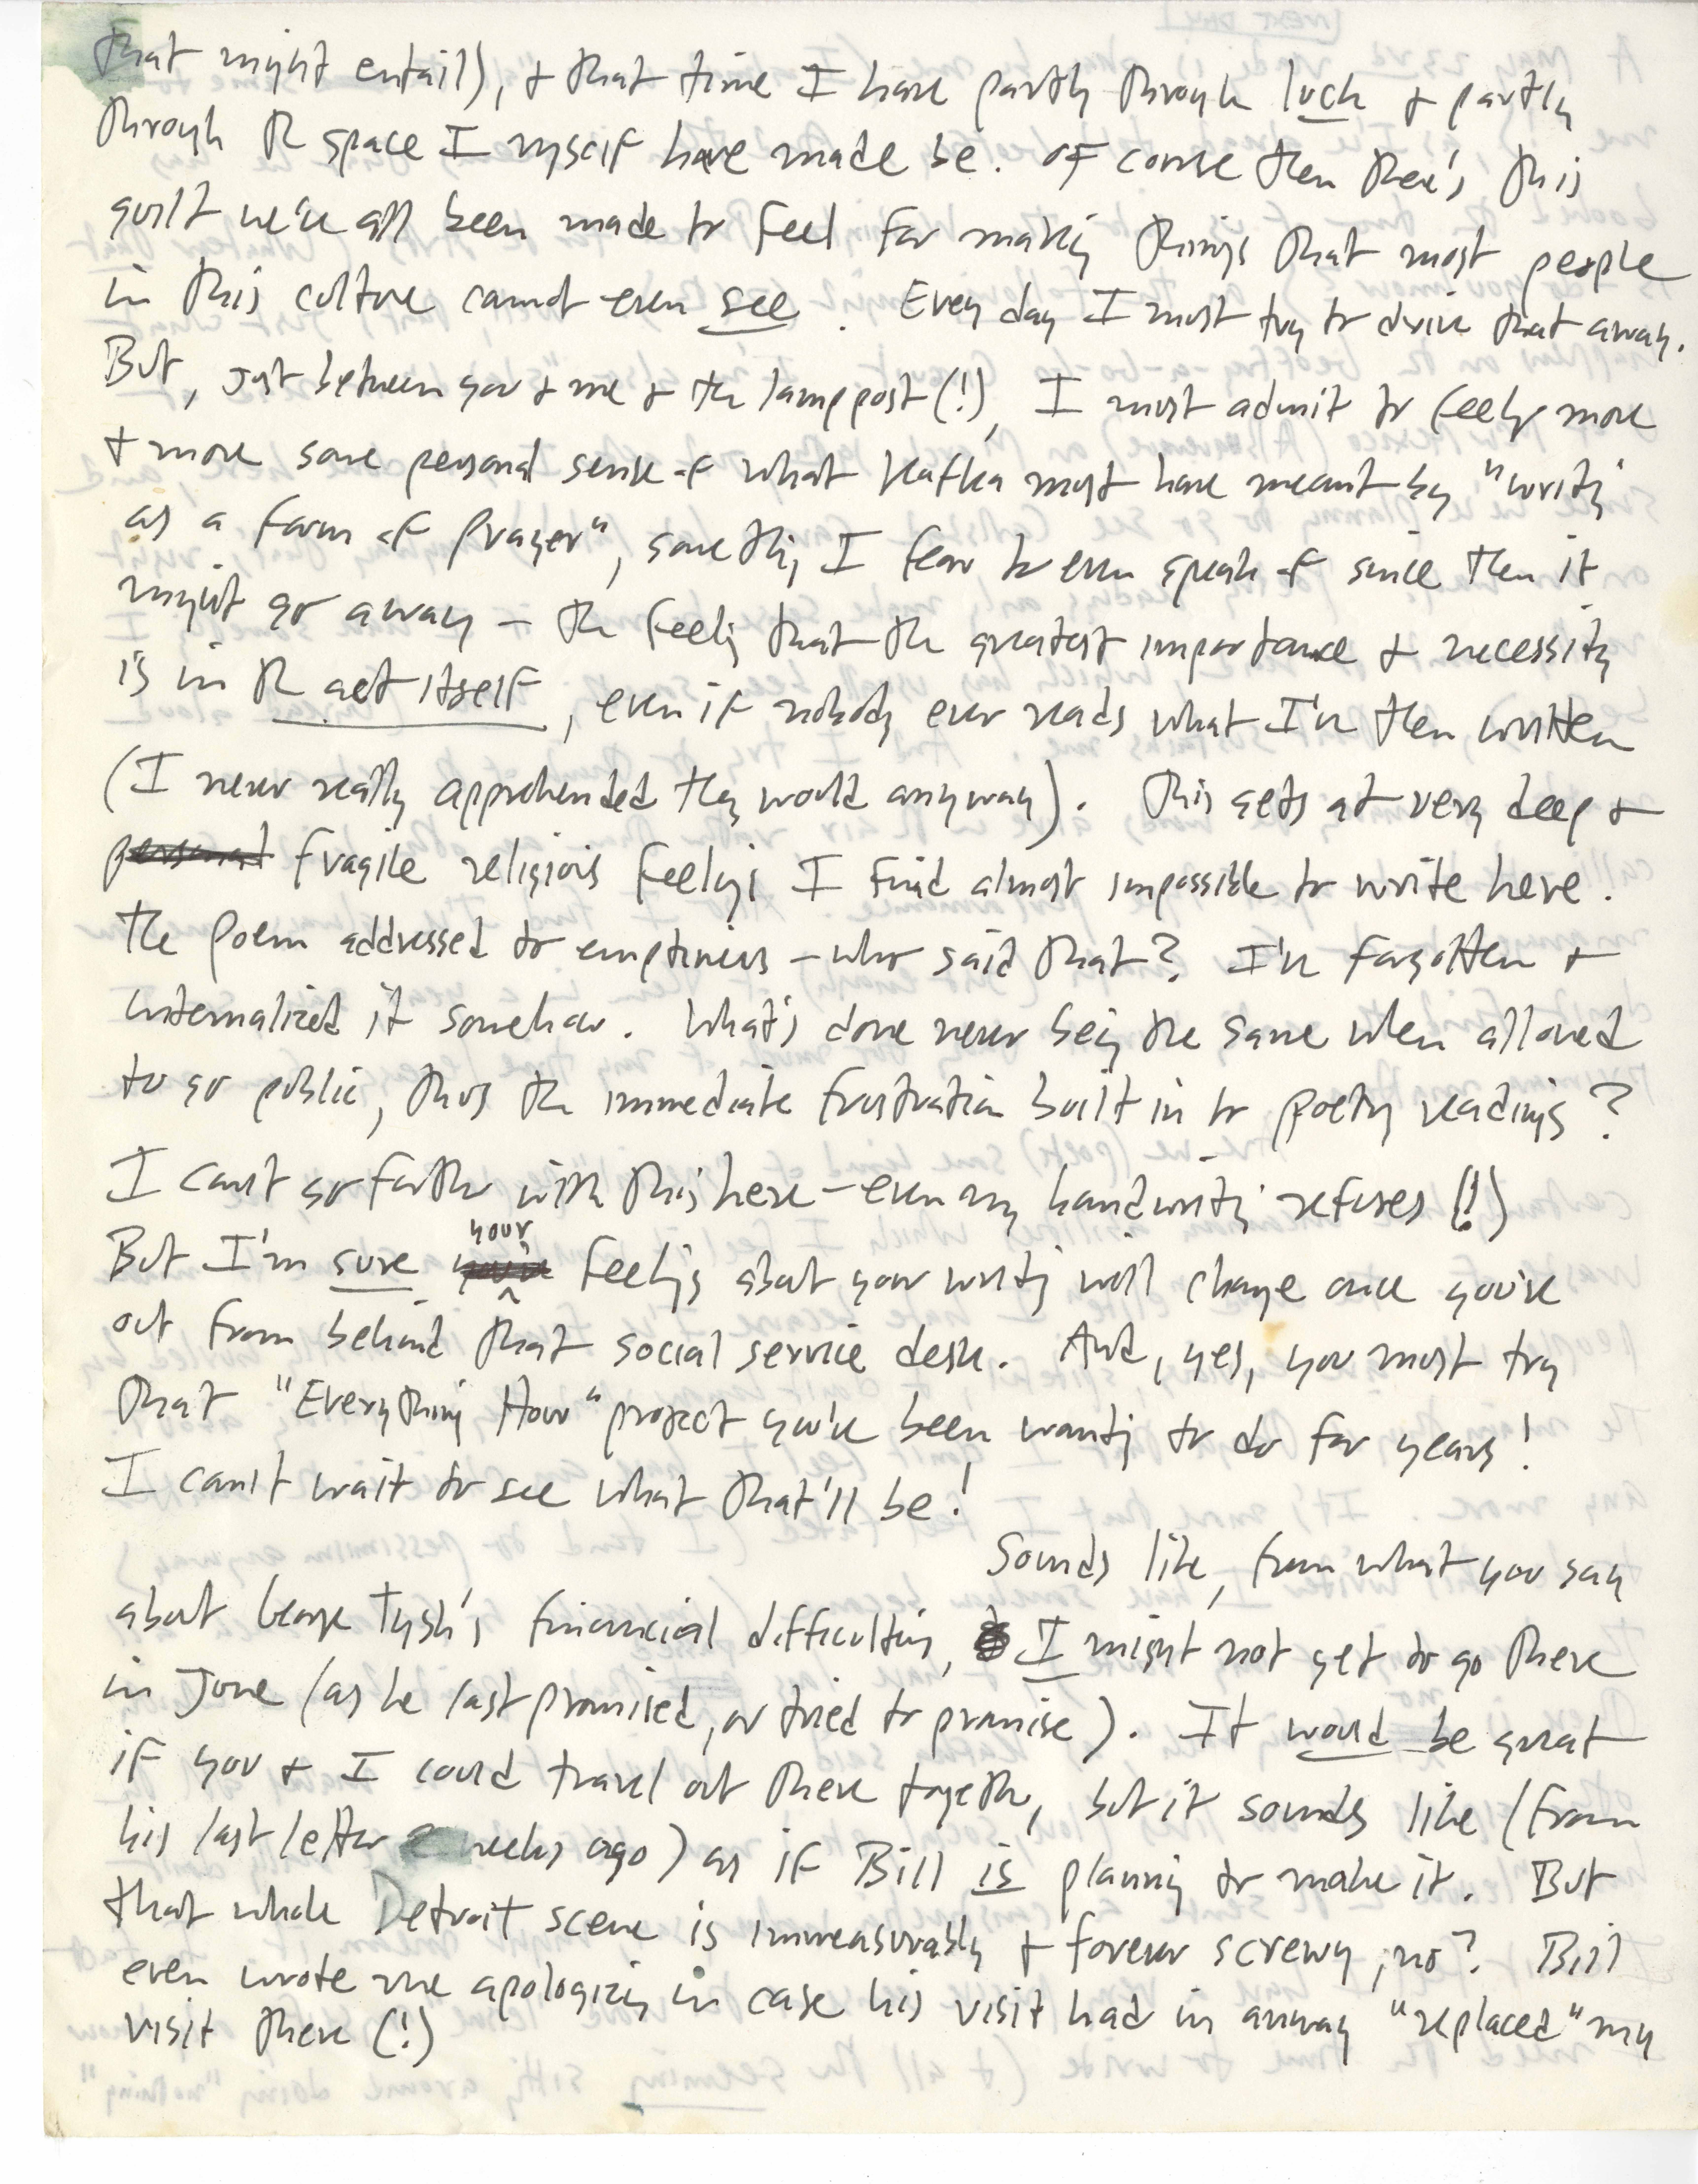 that might entail), + that time I have partly through luck + partly
through the space I myself have made be. Of course then there's this
guilt we've all been made to feel for making things that most people
in this culture cannot even see. Every day I must try to drive that away.
But, just between you + me + the lamppost (!), I must admit to feeling more
+ more some personal sense of what Kafka must have meant by "writing
as a form of prayer", something I fear to even speak of since then it
might go away – the feeling that the greatest importance + necessity
is in the act itself, even if nobody ever reads what I've then written
(I never really apprehended they would anyway). This gets at very deep +
personal fragile religious feelings I find almost impossible to write here.
The poem addressed to emptiness – who said that? I've forgotten +
internalized it somehow. What's done never being the same when allowed
to go public, thus the immediate frustration built in to poetry readings?
I can't go farther with this here – even my handwriting refuses (!)
But I'm sure your feelings about your writing will change once you're
out from behind that social service desk. And, yes, you must try
that "Everything How" project you've been wanting to do for years!
I can't wait to see what that'll be!
Sounds like, from what you say
about George Tysh's financial difficulties, I might not get to go there
in June (as he last promised, or tried to promise). It would be great
if you + I could travel out there together, but it sounds like (from
his last letter 2 weeks ago) as if Bill is planning to make it. But
that whole Detroit scene is immeasurably + forever screwy, no? Bill
even wrote me apologizing in case his visit had in anyway "replaced" my
visit there (!)